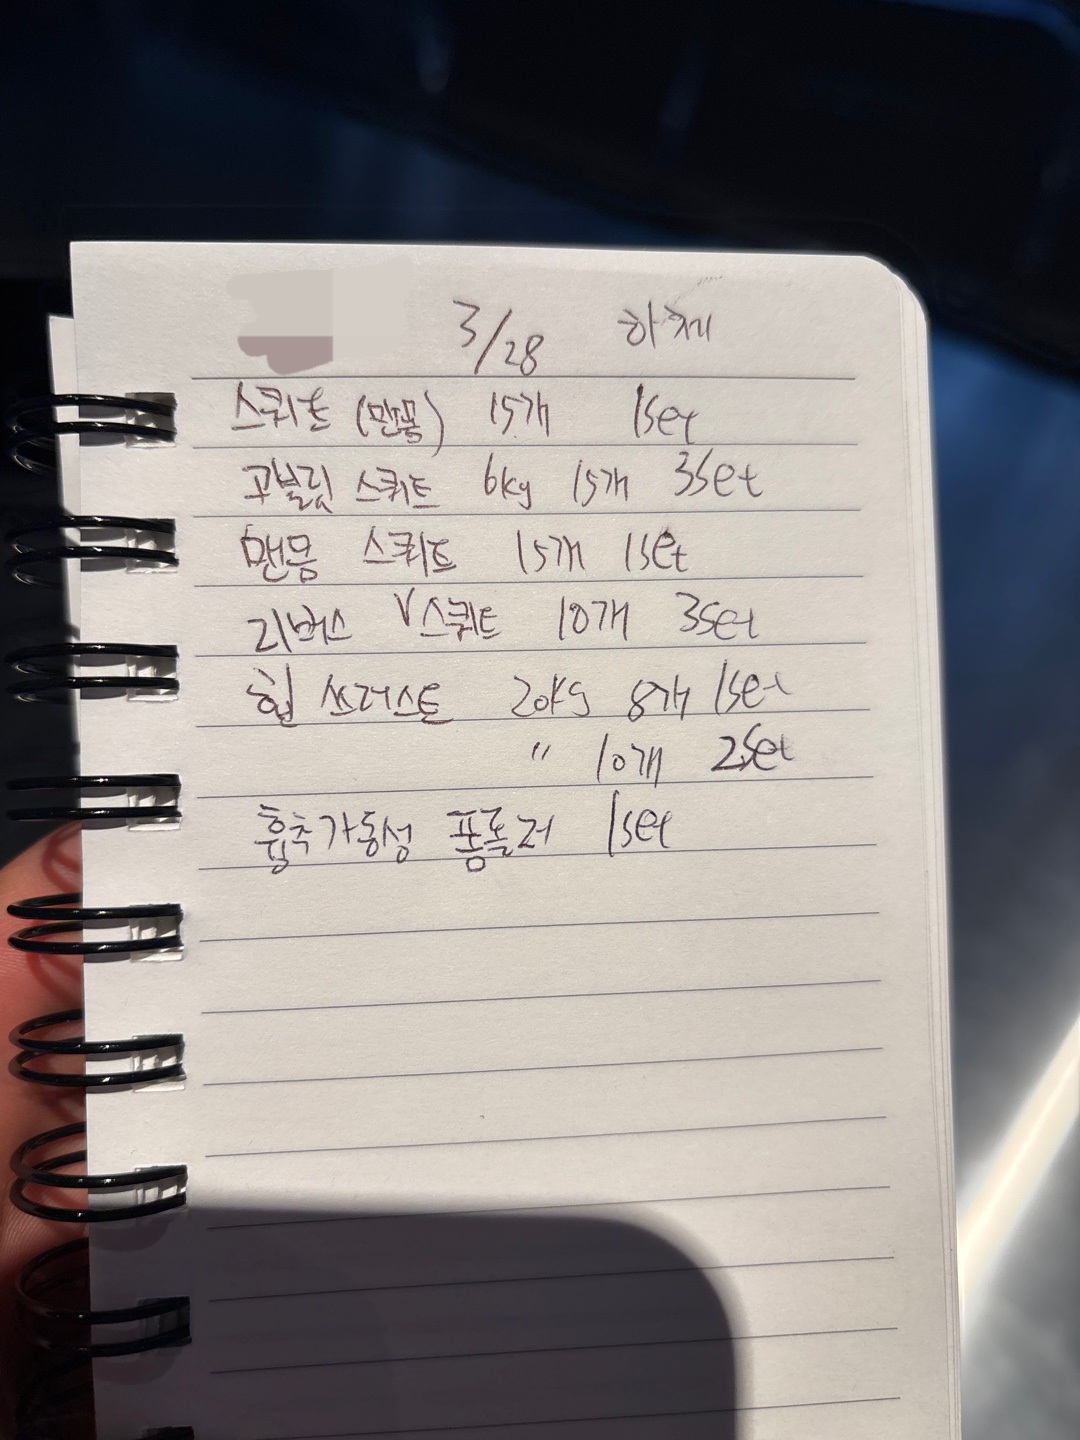 3/28 하체
스쿼트 (맨몸) 15개 1set
고블릿 스쿼트 6kg 15개 3set
맨몸 스쿼트 15개 1set
리버스 V스쿼트 10개 3set
힙 쓰러스트 20kg 8개 1set
" 10개 2set
흉추가동성 폼롤러 1set